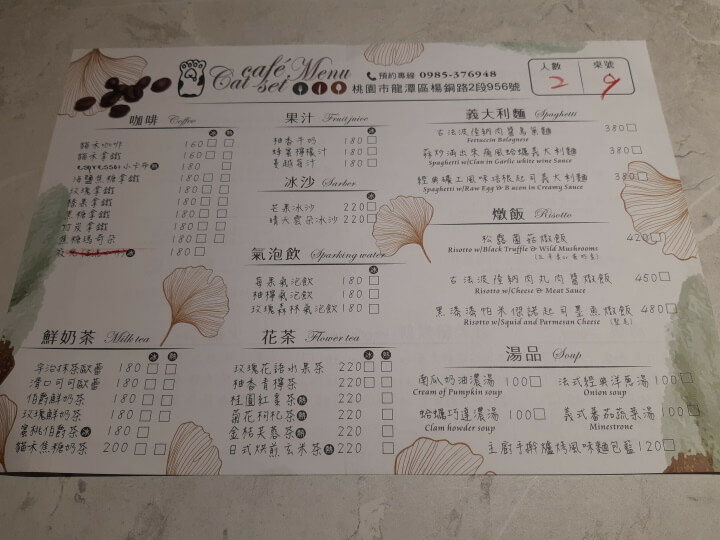 café Menu
Cat set
預約專線 0985-376948
桃園市龍潭區楊銅路2段956號
人數 桌號
2 9
咖啡 Coffee
冰 熱
貓禾咖啡 160
貓禾拿鐵 160
espresso小卡布 180
海鹽焦糖拿鐵 180
玫瑰拿鐵 180
榛果拿鐵 180
黑糖拿鐵 180
拿鐵 180
焦糖瑪奇朵 180
鮮奶茶 Milk tea
冰 熱
宇治抹茶歐蕾 180
滑口可可歐蕾 180
伯爵鮮奶茶 180
玫瑰鮮奶茶 180
蜜桃伯爵茶 冰 180
貓禾焦糖奶茶 200
果汁 Fruit juice
冰
柚香多奶 180
蜂蜜檸檬汁 180
蔓越莓汁 180
冰沙 Sorber
冰
芒果冰沙 220
晴天雲朵冰沙 220
氣泡飲 Sparking water
冰
莓果氣泡飲 180
柚檸氣泡飲 180
玫瑰森林氣泡飲 180
花茶 Flower tea
冰 熱
玫瑰花語水果茶 220
柚香青檸茶 220
桂圓紅棗茶 熱 220
菊花枸杞茶 熱 220
金桔芙蓉茶 熱 220
日式烘煎玄米茶 熱 220
義大利麵 Spaghetti
古法波隆納肉醬寬扁麵 380
Fettuccin Bolognese
蒜炒海出來瘋蛤蠣義大利麵 380
Spaghetti w/Clan in Garlic white wine Sauce
經典礦工風味培根起司義大利麵 380
Spaghetti w/Raw Egg & Bacon in Creamy Sauce
燉飯 Risotto
松露菌菇燉飯 420
Risotto w/Black Truffle & Wild Mushrooms
古法波隆納肉丸肉醬燉飯 450
Risotto w/Cheese & Meat Sauce
黑漆漆帕米傑諾起司墨魚燉飯 480
Risotto w/Squid and Parmesan Cheese
湯品 Soup
南瓜奶油濃湯 100
Cream of Pumpkin soup
法式經典洋蔥湯 100
Onion soup
蛤蠣巧達濃湯 100
Clam howder soup
義式番茄蔬菜湯 100
Minestrone
主廚手擀爐烤風味麵包籃 120